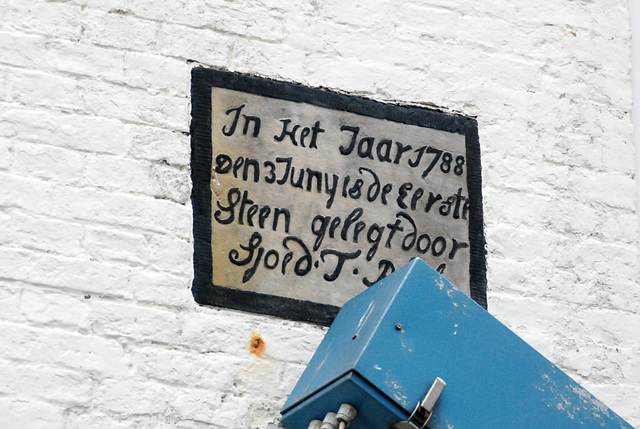 In Het Jaar 1788
Den 3 Juny is de Eerste
Steen gelegt door
Sjoed. T.